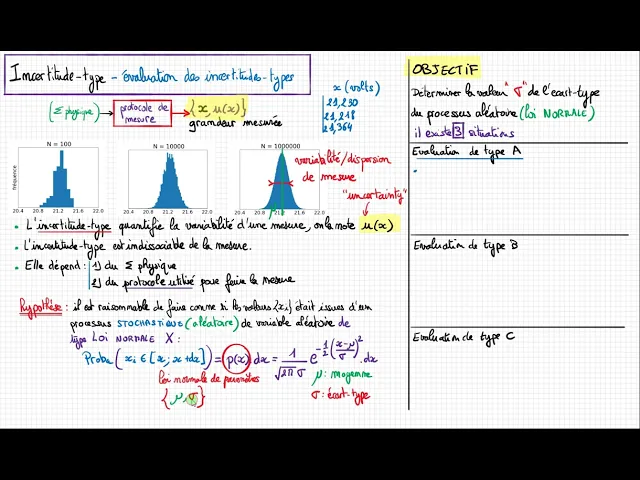 Incertitude-type - évaluation des incertitudes-types
(Σ physique) → protocole de mesure → {x, u(x)}
grandeur mesurée
x (volts)
21,230
21,218
21,364
N = 100
N = 10000
N = 1000000
fréquence
20.4 20.8 21.2 21.6 22.0
20.4 20.8 21.2 21.6 22.0
20.4 20.8 21.2 21.6 22.0
μ
variabilité/dispersion
de mesure
"uncertainty"
• L'incertitude-type quantifie la variabilité d'une mesure, on la note u(x)
• L'incertitude-type est indissociable de la mesure.
• Elle dépend : 1) du Σ physique
2) du protocole utilisé pour faire la mesure
Hypothèse : il est raisonnable de faire comme si les valeurs {xi} était issues d'un
processus STOCHASTIQUE (aléatoire) de variable aléatoire de
type LOI NORMALE X :
Proba (xi ∈ [x ; x+dx]) = p(x) dx = 1/√2π σ e^-1/2 (x-μ/σ)² . dx
loi normale de paramètres
{μ, σ}
μ : moyenne
σ : écart-type
OBJECTIF
Déterminer la valeur "σ" de l'écart-type
du processus aléatoire (loi NORMALE)
il existe 3 situations
Evaluation de type A
•
Evaluation de type B
Evaluation de type C